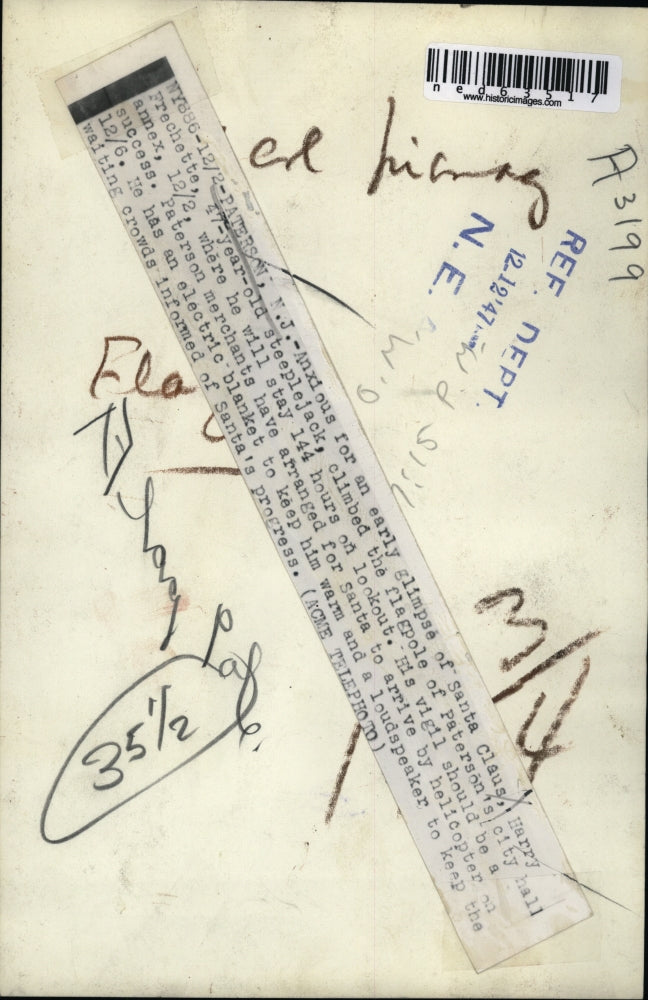 ned63517
www.historicimages.com
A3199
REF. DEPT.
12-12'47
N. E.
NY886-12/2-PATERSON, N.J.-Anxious for an early glimpse of Santa Claus, Harry
Frechette, 47-year-old steeplejack, climbed the flagpole of Paterson's city hall
annex, 12/2, where he will stay 144 hours on lookout. His vigil should be a
success. Paterson merchants have arranged for Santa to arrive by helicopter on
12/6. He has an electric blanket to keep him warm and a loudspeaker to keep the
waiting crowds informed of Santa's progress. (ACME TELEPHOTO)
Flag
35 1/2
3/4